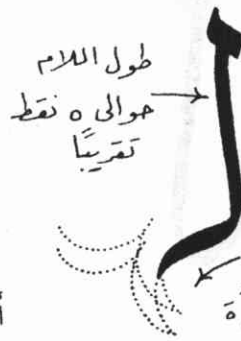 طول اللام
حوالى ٥ نقط
تقريبًا